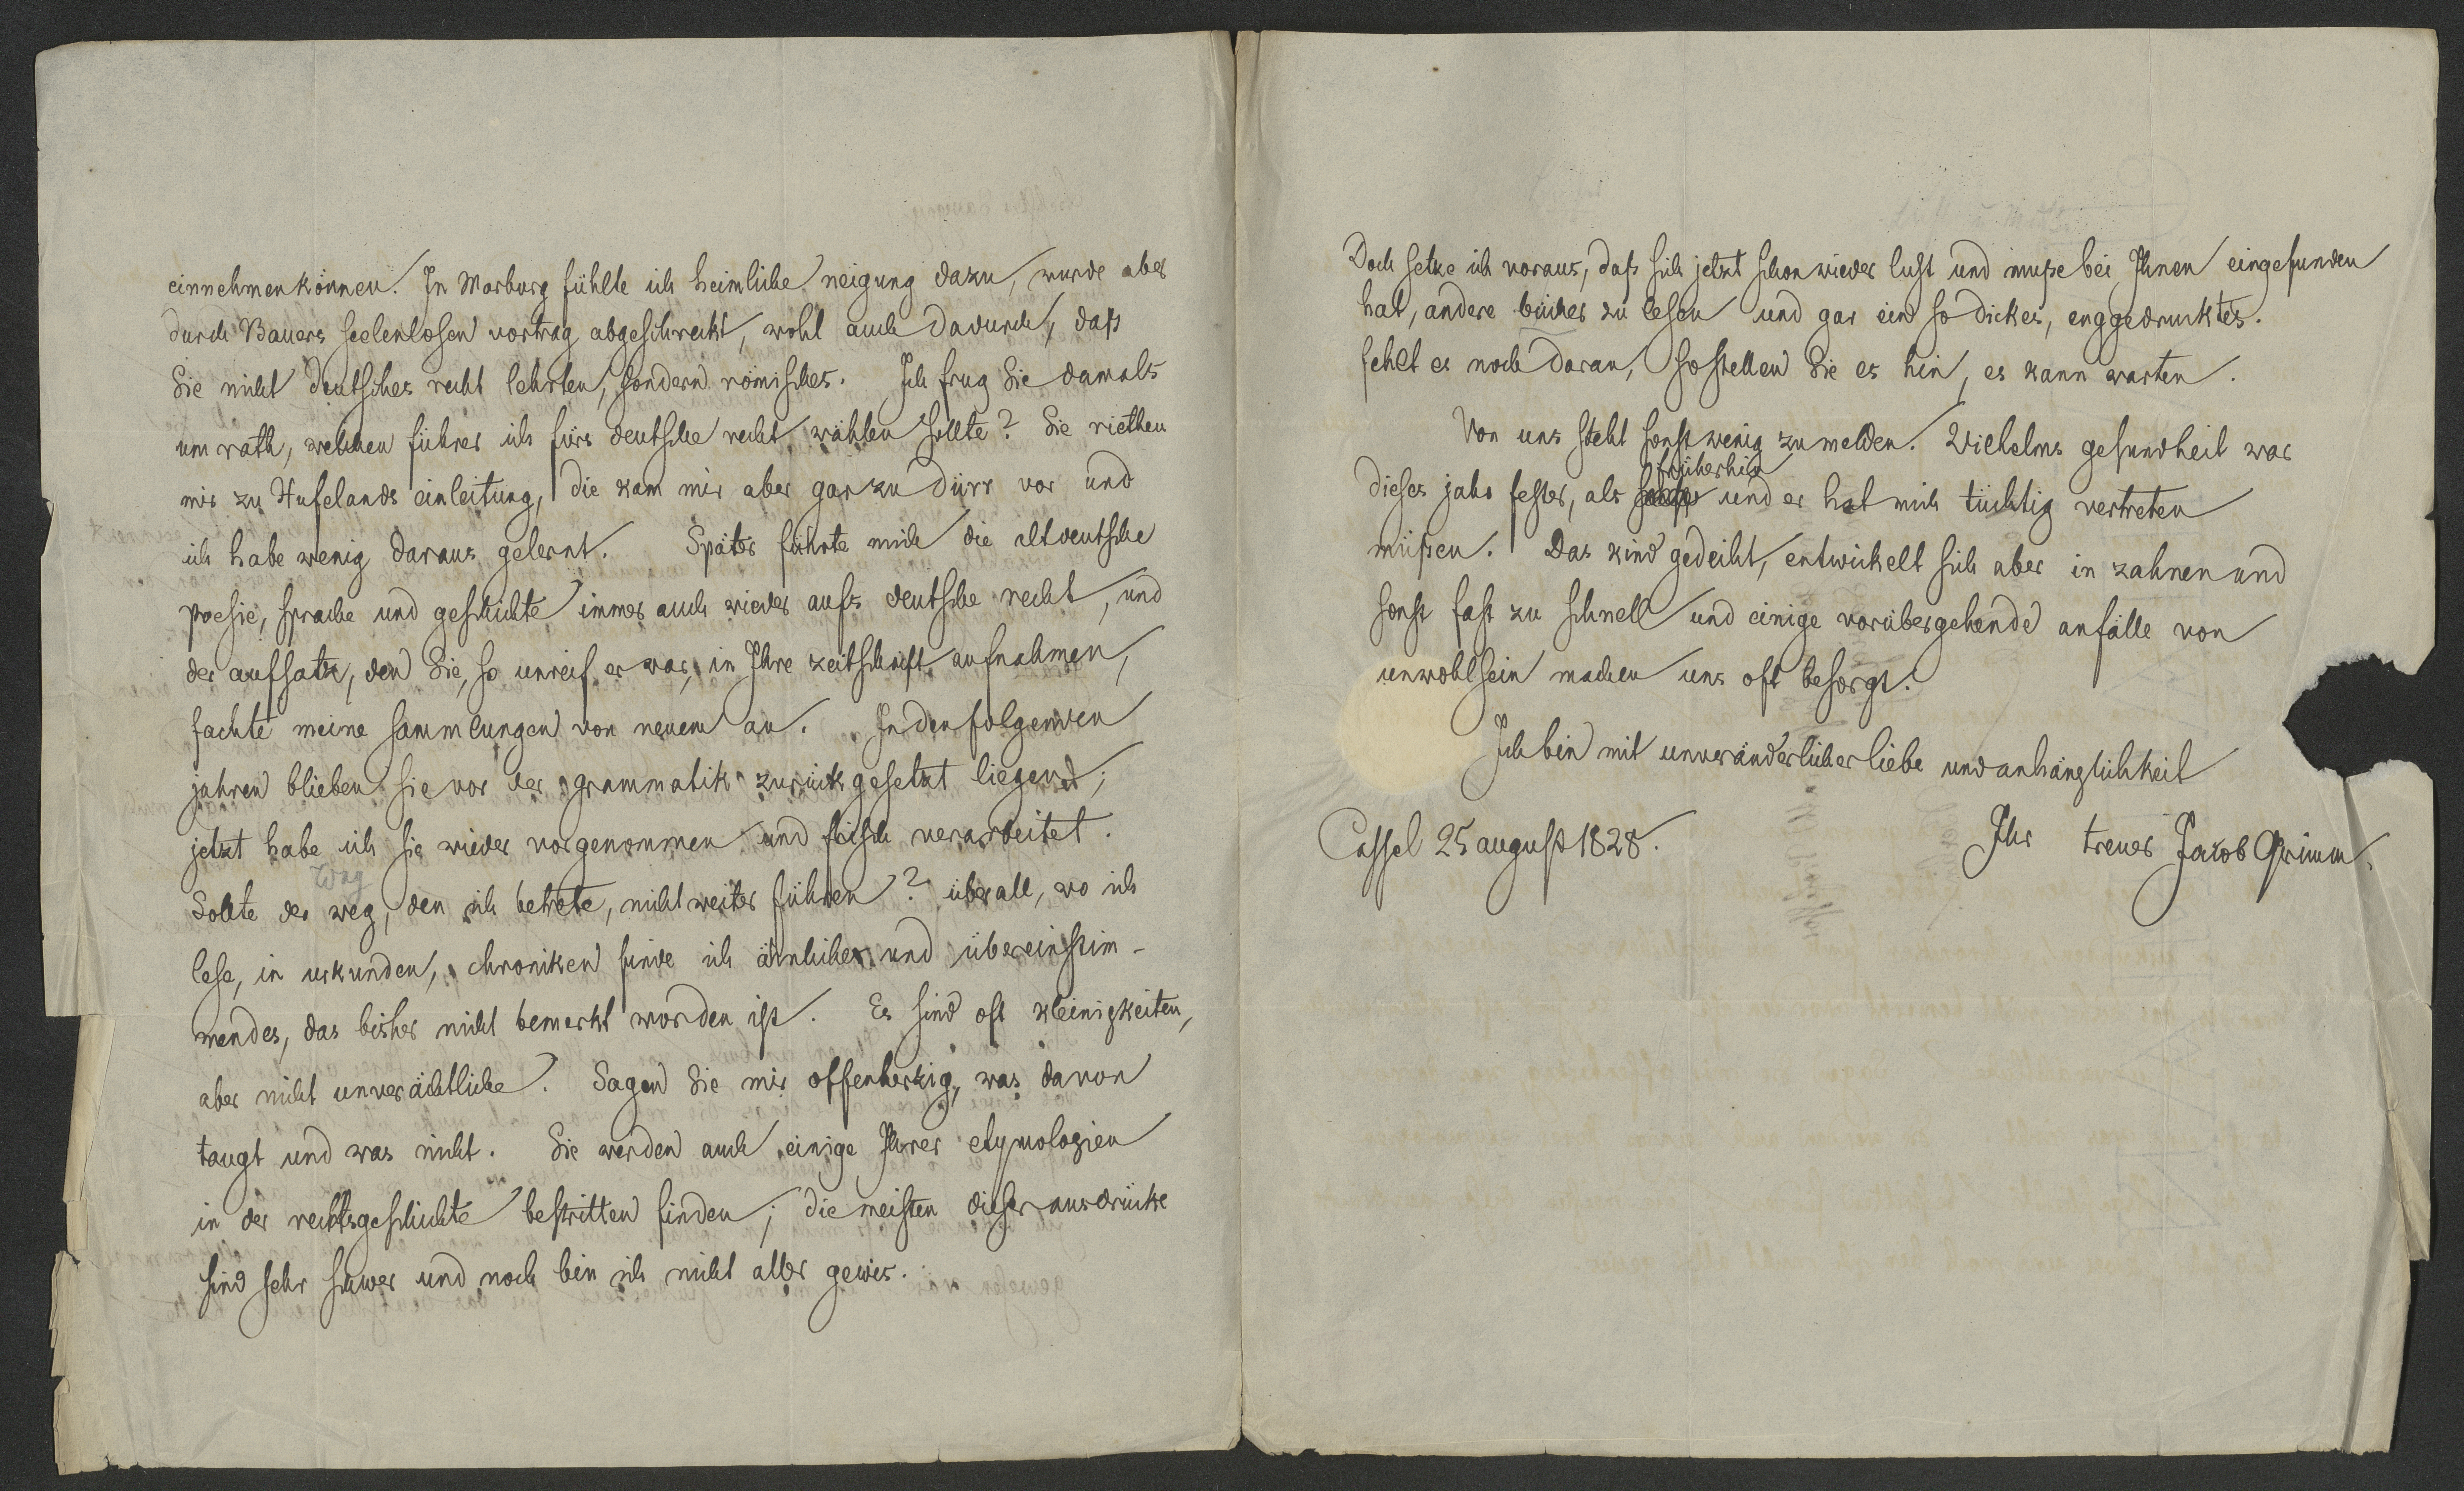 einnehmen können. In Marburg fühlte ich heimliche neigung dazu, wurde aber
durch Bauers seelenlosen vortrag abgeschreckt, wohl auch dadurch, daß
Sie nicht deutsches recht lehrten, sondern römisches. Ich frug Sie damals
um rath, welchen führer ich fürs deutsche recht wählen sollte? Sie riethen
mir zu Hufelands einleitung, die kam mir aber gar zu dürr vor und
ich habe wenig daraus gelernt. Später führte mich die altdeutsche
poesie, sprache und geschichte immer auch wieder aufs deutsche recht, und
der aufsatz, den Sie, so unreif er war, in Ihre zeitschrift aufnahmen,
fachte meine sammlungen von neuem an. In den folgenden
jahren blieben sie vor der grammatik zurückgesetzt liegend;
jetzt habe ich sie wieder vorgenommen und frisch verarbeitet.
Weg
Sollte der weg, den ich betrete, nicht weiter führen? überall, wo ich
lese, in urkunden, chroniken finde ich änliches und übereinstim-
mendes, das bisher nicht bemerkt worden ist. Es sind oft kleinigkeiten,
aber nicht unverächtliche. Sagen Sie mir offenherzig, was davon
taugt und was nicht. Sie werden auch einige Ihrer etymologien
in der rechtsgeschichte bestritten finden; die meisten dieser ausdrücke
sind sehr schwer und noch bin ich nicht aller gewis.
Doch setze ich voraus, daß sich jetzt schon wieder lust und muße bei Ihnen eingefunden
hat, andere bücher zu lesen und gar ein so dickes, enggedrucktes.
fehlt es noch daran, so stellen Sie es hin, es kann warten.
Von uns steht sonst wenig zu melden. Wilhelms gesundheit war
früherhin
dieses jahr fester, als und er hat mich tüchtig vertreten
müßen. Das kind gedeiht, entwickelt sich aber in zahnen und
sonst fast zu schnell und einige vorübergehende anfälle von
unwohlsein machen uns oft besorgt.
Ich bin mit unveränderlicher liebe und anhänglichkeit
Cassel 25 august 1828. Ihr treuer Jacob Grimm.